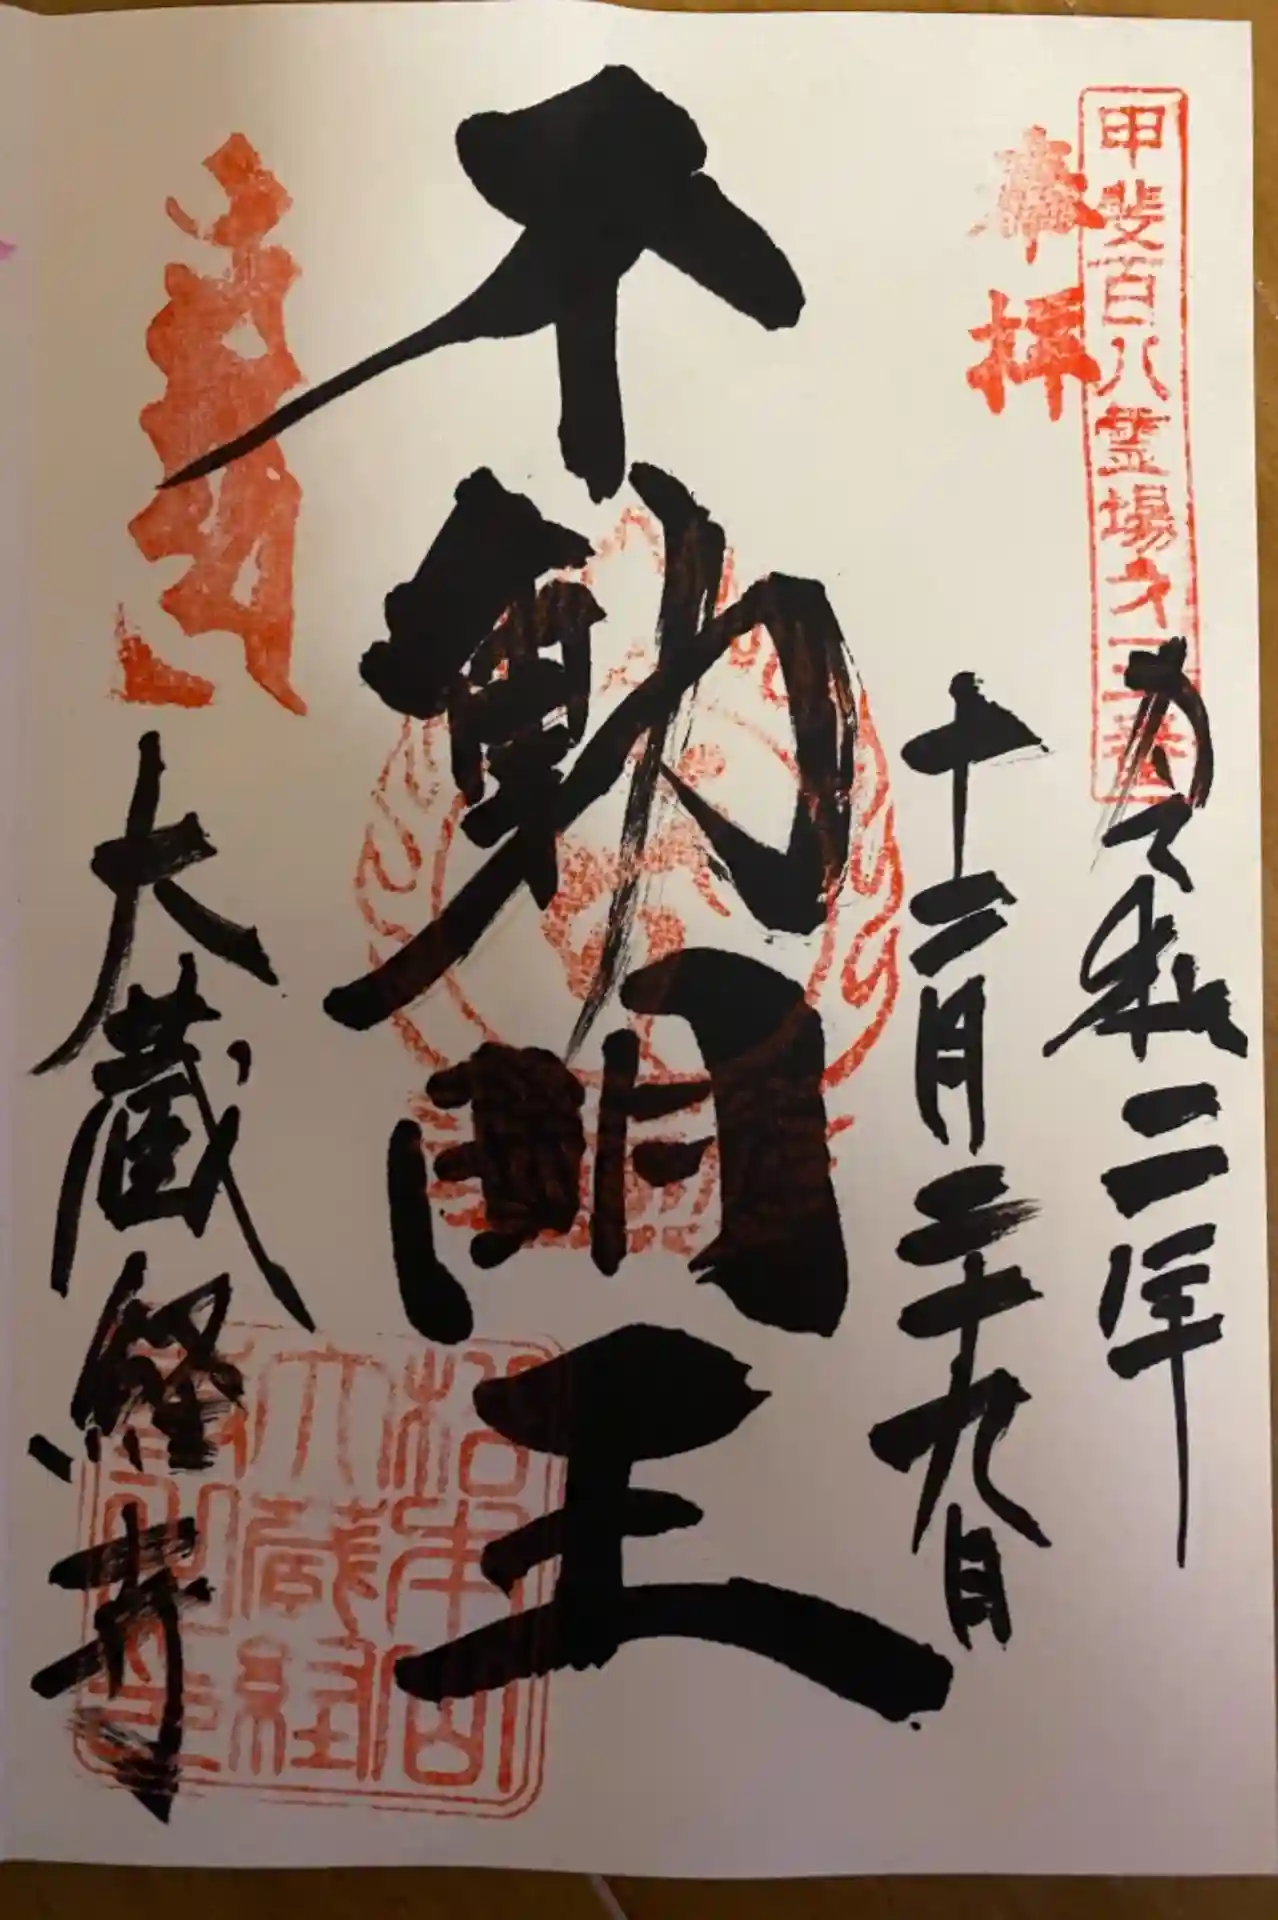 甲斐百八霊場才
奉拝
令和二年
十二月二十九日
不動明王
大蔵経寺
松本山
大蔵経